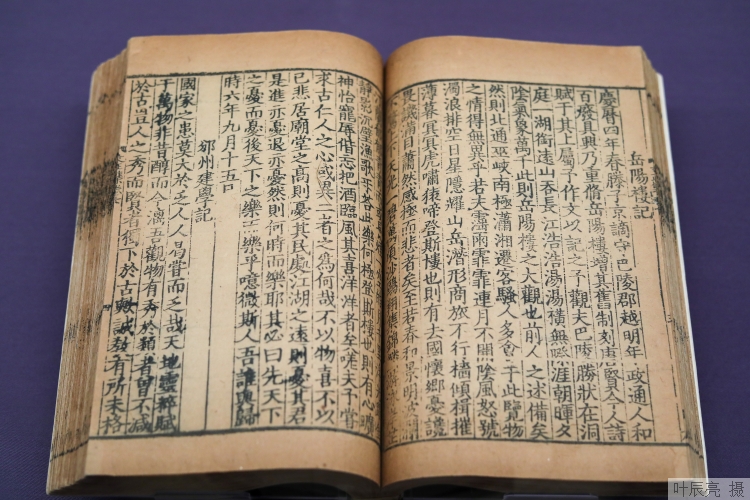 岳陽樓記
慶曆四年春滕子京謫守巴陵郡越明年政通人和
百癈具興乃重脩岳陽樓增其舊制刻唐賢今人詩
賦于其上屬予作文以記之予觀夫巴陵勝狀在洞
庭一湖銜遠山吞長江浩浩湯湯橫無際涯朝暉夕
陰氣象萬千此則岳陽樓之大觀也前人之述備矣
然則北通巫峽南極瀟湘遷客騷人多會于此覽物
之情得無異乎若夫霪雨霏霏連月不開陰風怒號
濁浪排空日星隱耀山岳潛形商旅不行檣傾楫摧
薄暮冥冥虎嘯猿啼登斯樓也則有去國懷鄉憂讒
畏譏滿目蕭然感極而悲者矣至若春和景明波瀾
靜影沉璧漁歌互答此樂何極登斯樓也則有心曠
神怡寵辱偕忘把酒臨風其喜洋洋者矣嗟夫予嘗
求古仁人之心或異二者之為何哉不以物喜不以
已悲居廟堂之高則憂其民處江湖之遠則憂其君
是進亦憂退亦憂然則何時而樂耶其必曰先天下
之憂而憂後天下之樂而樂乎噫微斯人吾誰與歸
時六年九月十五日
邠州建學記
國家之患莫大於乏人人曷嘗而乏哉天地靈粹賦
于萬物非昔醇而今漓吾觀物有秀於類者曾不減
於古豈人之秀而賢者獨下於古歟誠敎有所未格
叶辰亮 摄